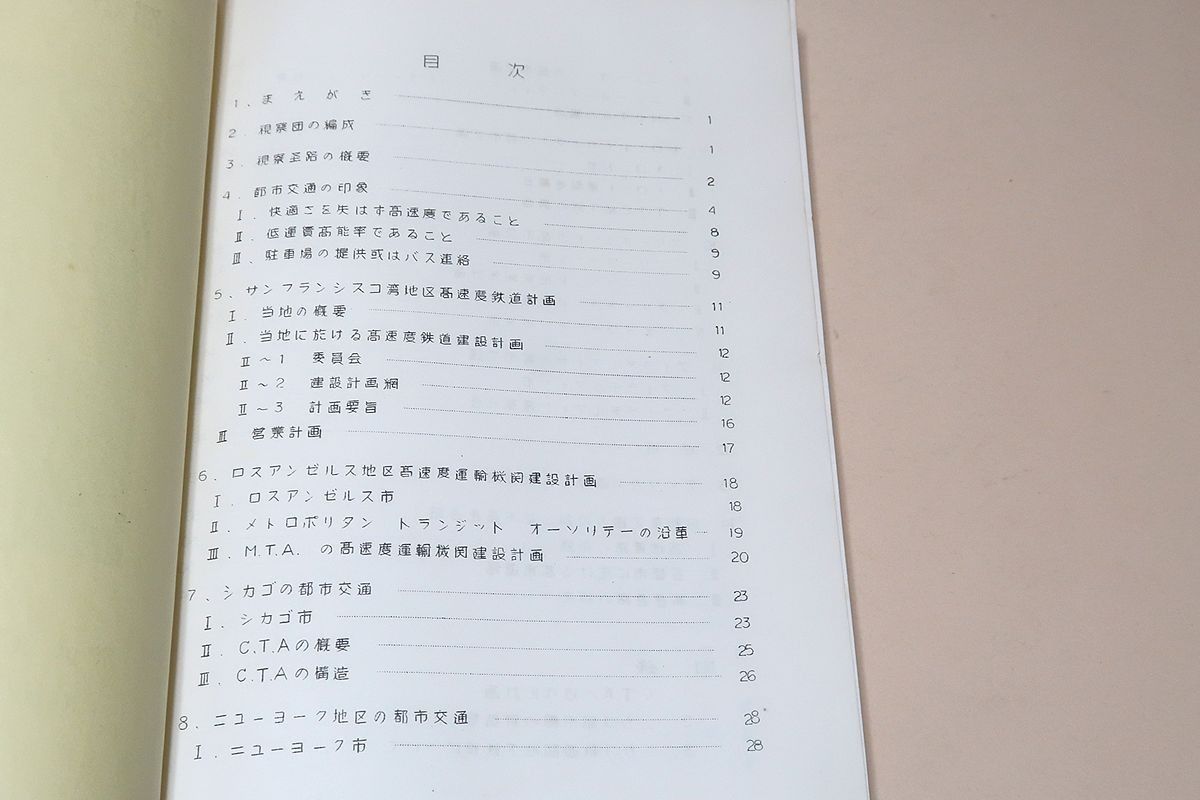 目 次
1、まえがき 1
2．視察団の編成 1
3．視察圣路の概要 2
4．都市交通の印象 4
Ⅰ．快適さを失はす高速度であること 8
Ⅱ．低運賃高能率であること 9
Ⅲ．駐車場の提供或はバス連絡 9
5、サンフランシスコ湾地区高速度鉄道計画 11
Ⅰ．当地の概要 11
Ⅱ．当地に於ける高速度鉄道建設計画 12
Ⅱ～1 委員会 12
Ⅱ～2 建設計画網 12
Ⅱ～3 計画要旨 16
Ⅲ 営業計画 17
6．ロスアンゼルス地区高速度運輸機関建設計画 18
Ⅰ．ロスアンゼルス市 18
Ⅱ．メトロポリタン トランジット オーソリテーの沿革 19
Ⅲ．M.T.A. の高速度運輸機関建設計画 20
7、シカゴの都市交通 23
Ⅰ．シカゴ市 23
Ⅱ．C.T.Aの概要 25
Ⅲ．C.T.Aの構造 26
8．ニューヨーク地区の都市交通 28
Ⅰ．ニューヨーク市 28